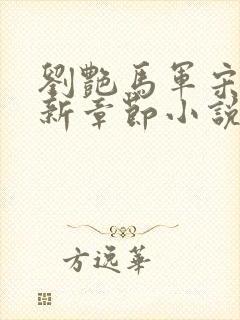 劉艷馬軍宋
新章節小說
方逸華